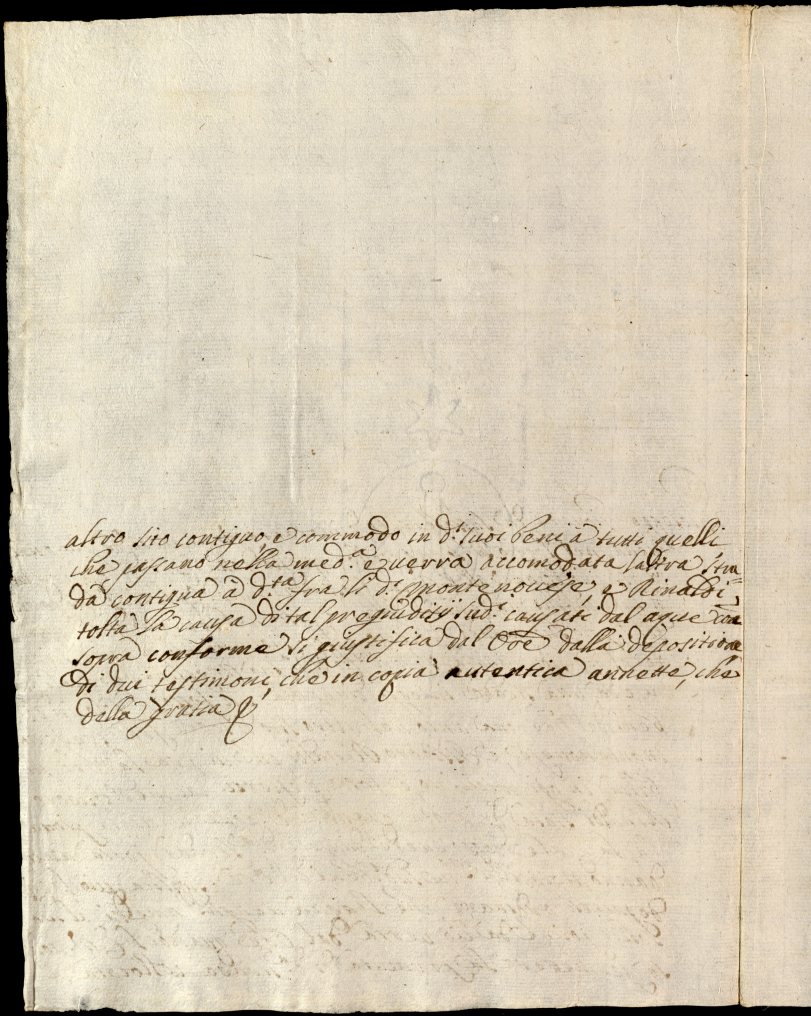 altro sito contiguo, e commodo in d.i suoi beni à tutti quelli
che passano nella med.a e verrà accomodata l'altra stra=
da contigua à d.ta fra li d.i Montenovese, e Rinaldi,
tolta la causa di tal pregiuditij sud.i causati dal aque
sopra conforme si giustifica dal Ore dalla depositione
di dui testimoni, che in copia autentica annette, che
della gratia &